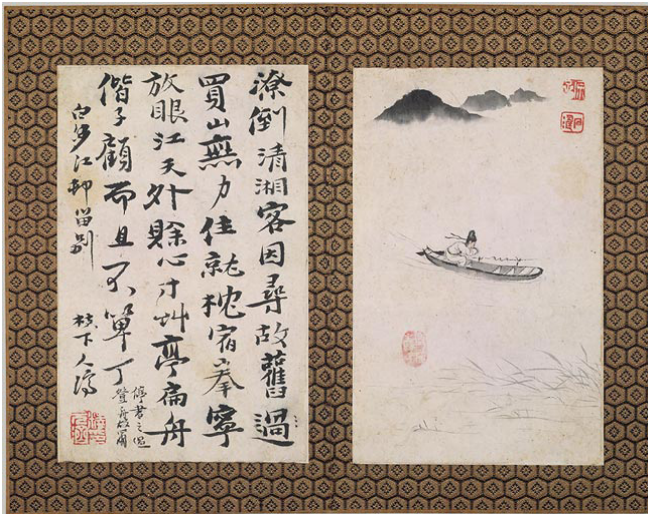 潦倒清湘客因尋故舊過
買山無力住就枕宿寧
放眼江天外賒心寸艸亭扁舟
偕子顧而且不單丁
白沙江邨留別
枝下人濟